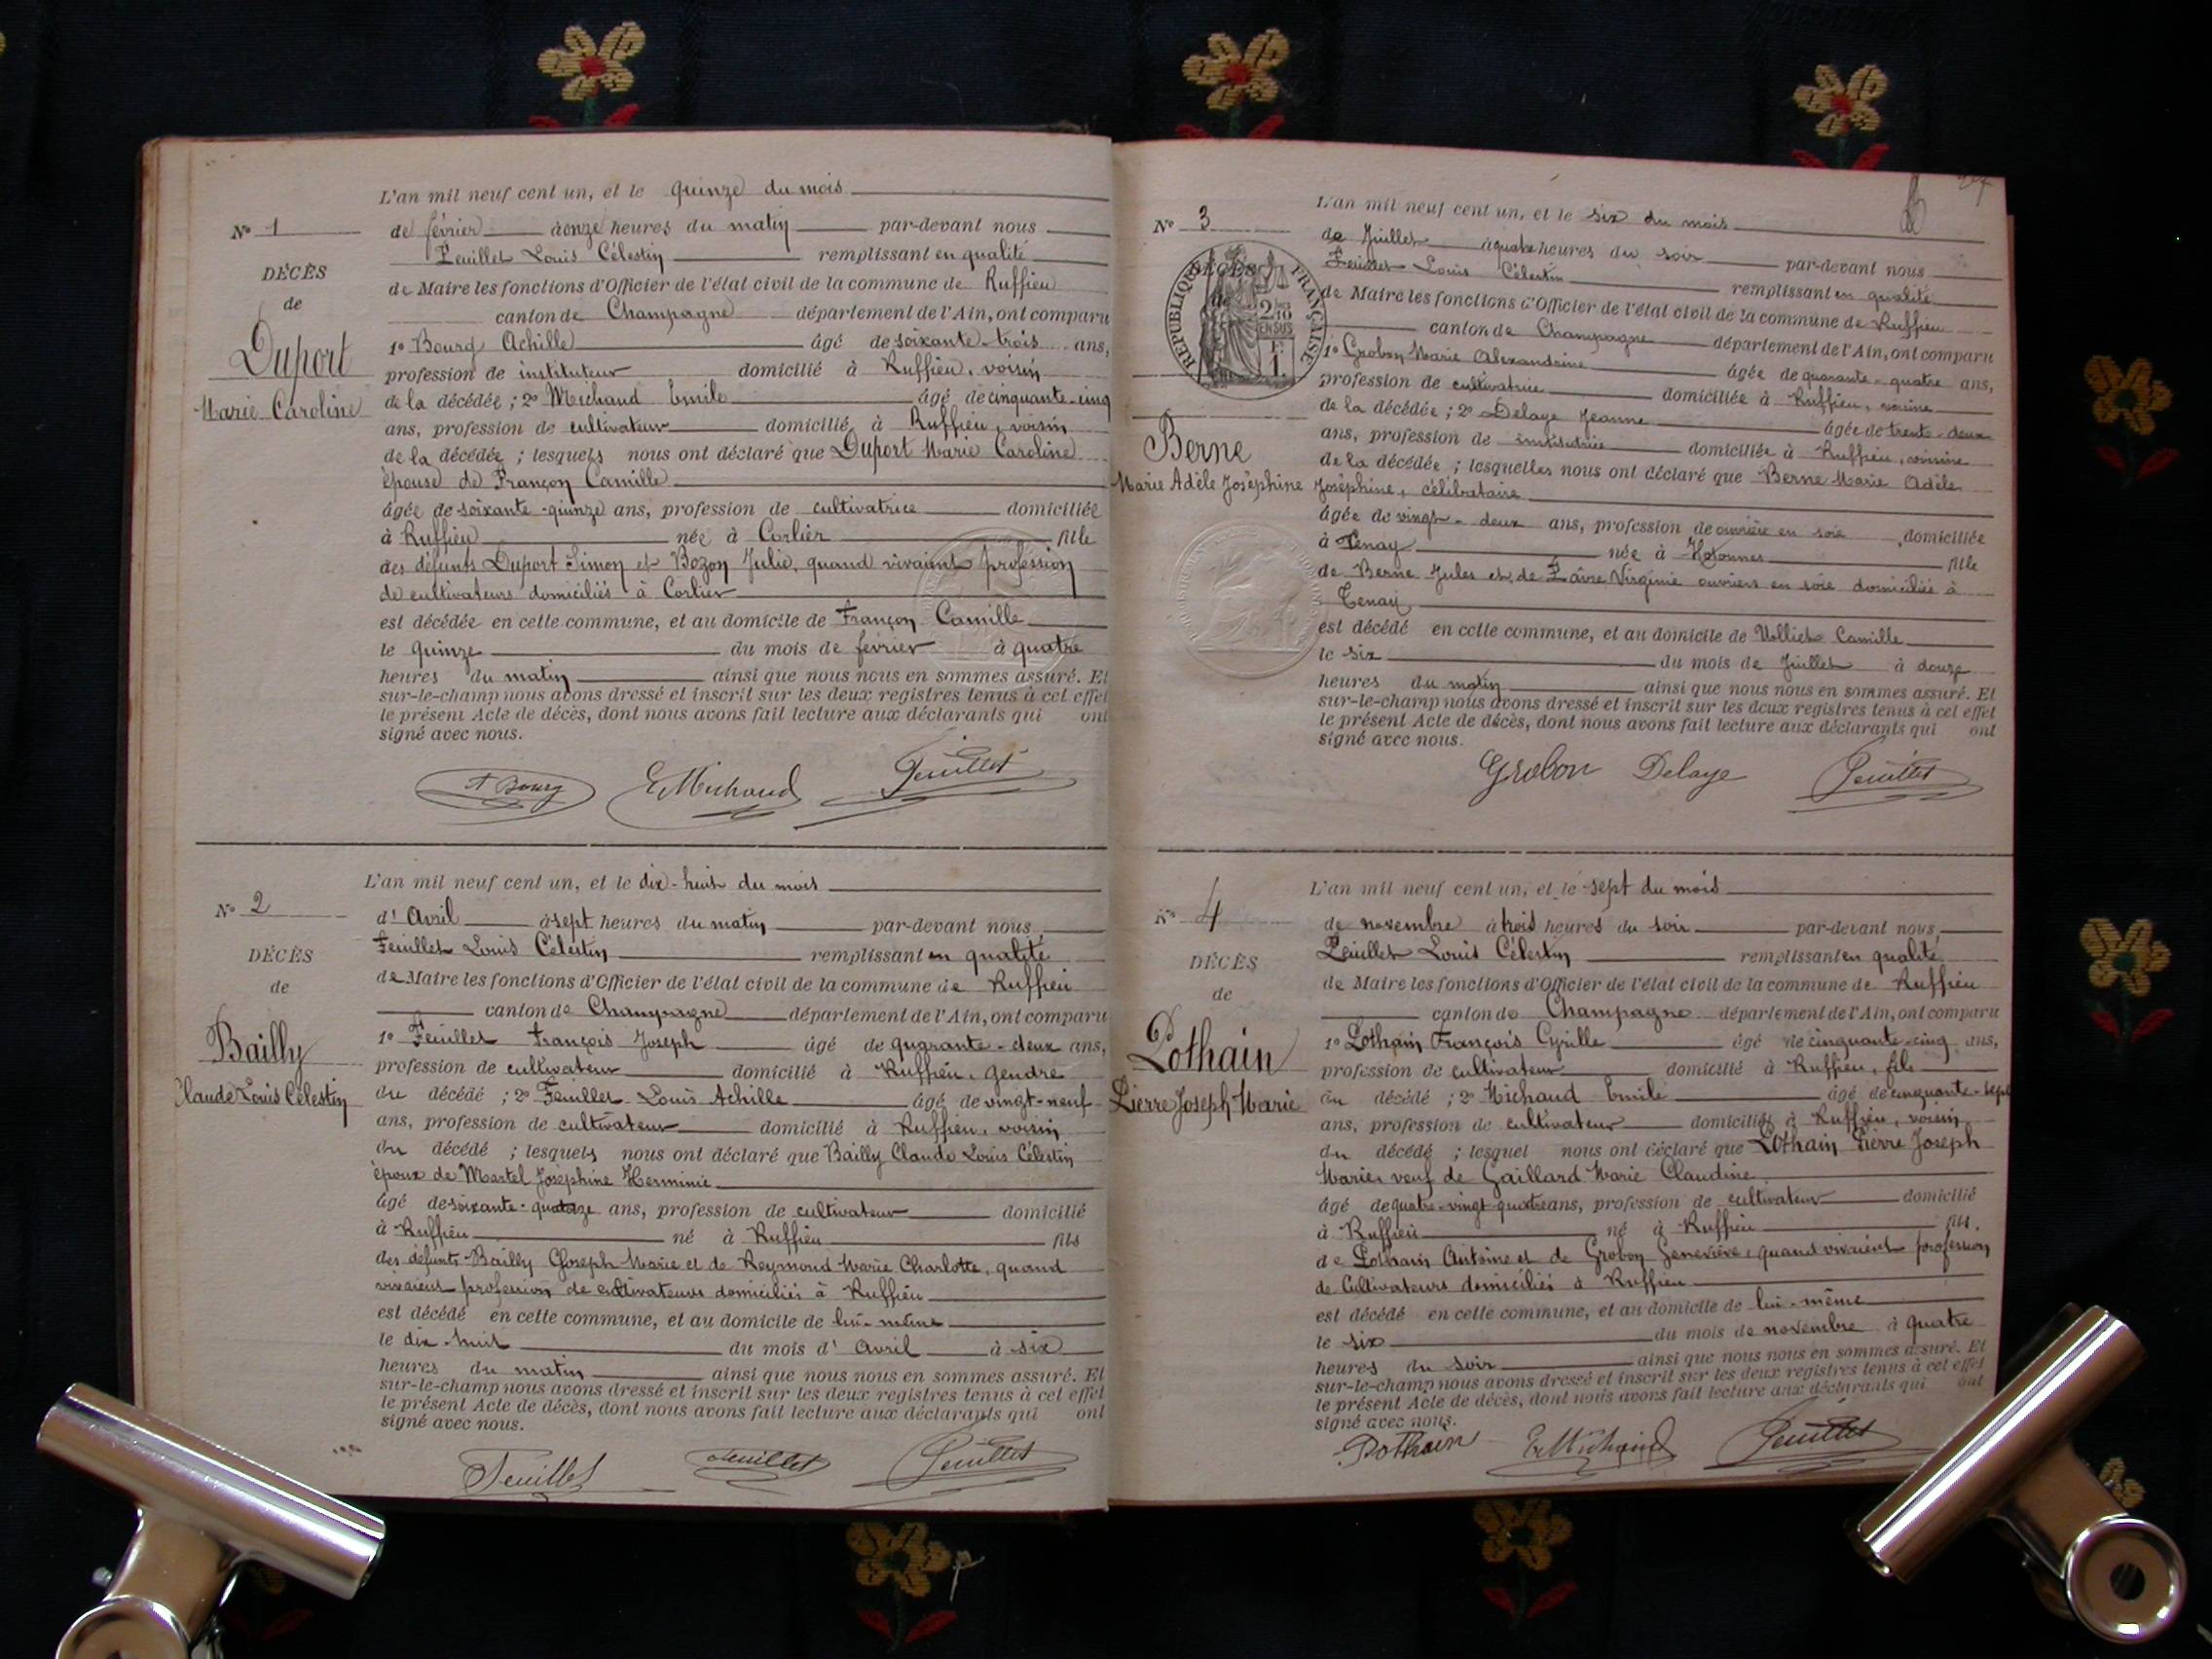 L'an mil neuf cent un, et le quinze du mois
N° 1
de février à onze heures du matin par-devant nous
Feuillet Louis Célestin remplissant en qualité
DÉCÈS
de Maire les fonctions d'Officier de l'état civil de la commune de Ruffieu
de
canton de Champagne département de l'Ain, ont comparu
Duport
1° Bourg Achille âgé de soixante-trois ans,
profession de instituteur domicilié à Ruffieu, voisin
Marie Caroline
de la décédée ; 2° Michaud Emile âgé de cinquante-cinq
ans, profession de cultivateur domicilié à Ruffieu, voisin
de la décédée ; lesquels nous ont déclaré que Duport Marie Caroline
épouse de Françon Camille
âgée de soixante-quinze ans, profession de cultivatrice domiciliée
à Ruffieu née à Corlier fille
des défunts Duport Simon et Bozon Julie, quand vivaient profession
de cultivateurs domiciliés à Corlier
est décédée en cette commune, et au domicile de Françon Camille
le quinze du mois de février à quatre
heures du matin ainsi que nous nous en sommes assuré. Et
sur-le-champ nous avons dressé et inscrit sur les deux registres tenus à cet effet
le présent Acte de décès, dont nous avons fait lecture aux déclarants qui ont
signé avec nous.
A Bourg E Michaud Feuillet
L'an mil neuf cent un, et le dix-huit du mois
N° 2
d' Avril à sept heures du matin par-devant nous,
Feuillet Louis Célestin remplissant en qualité
DÉCÈS
de Maire les fonctions d'Officier de l'état civil de la commune de Ruffieu
de
canton de Champagne département de l'Ain, ont comparu
Bailly
1° Feuillet François Joseph âgé de quarante-deux ans,
profession de cultivateur domicilié à Ruffieu, gendre
Claude Louis Célestin
du décédé ; 2° Feuillet Louis Achille âgé de vingt-neuf
ans, profession de cultivateur domicilié à Ruffieu, voisin
du décédé ; lesquels nous ont déclaré que Bailly Claude Louis Célestin
époux de Martel Joséphine Herminie
âgé de soixante-quatorze ans, profession de cultivateur domicilié
à Ruffieu né à Ruffieu fils
des défunts Bailly Joseph Marie et de Reymond Marie Charlotte, quand
vivaient profession de cultivateurs domiciliés à Ruffieu
est décédé en cette commune, et au domicile de lui-même
le dix-huit du mois d' Avril à six
heures du matin ainsi que nous nous en sommes assuré. Et
sur-le-champ nous avons dressé et inscrit sur les deux registres tenus à cet effet
le présent Acte de décès, dont nous avons fait lecture aux déclarants qui ont
signé avec nous.
Feuillet Feuillet Feuillet
L'an mil neuf cent un, et le six du mois
N° 3
de Juillet à quatre heures du soir par-devant nous
Feuillet Louis Célestin remplissant en qualité
RÉPUBLIQUE FRANÇAISE
de Maire les fonctions d'Officier de l'état civil de la commune de Ruffieu
canton de Champagne département de l'Ain, ont comparu
1° Grobon Marie Alexandrine âgée de quarante-quatre ans,
profession de cultivatrice domiciliée à Ruffieu, voisine
de la décédée ; 2° Delaye Jeanne âgée de trente-deux
Berne
ans, profession de institutrice domiciliée à Ruffieu, voisine
de la décédée ; lesquelles nous ont déclaré que Berne Marie Adèle
Marie Adèle Joséphine
Joséphine, célibataire
âgée de vingt-deux ans, profession de ouvrière en soie domiciliée
à Tenay née à Hotonnes fille
de Berne Jules et de Favre Virginie ouvriers en soie domiciliés à
Tenay
est décédé en cette commune, et au domicile de Volliet Camille
le six du mois de Juillet à douze
heures du matin ainsi que nous nous en sommes assuré. Et
sur-le-champ nous avons dressé et inscrit sur les deux registres tenus à cet effet
le présent Acte de décès, dont nous avons fait lecture aux déclarants qui ont
signé avec nous.
Grobon Delaye Feuillet
L'an mil neuf cent un, et le sept du mois
N° 4
de novembre à trois heures du soir par-devant nous,
Feuillet Louis Célestin remplissant en qualité
DÉCÈS
de Maire les fonctions d'Officier de l'état civil de la commune de Ruffieu
de
canton de Champagne département de l'Ain, ont comparu
Pothain
1° Pothain François Cyrille âgé de cinquante-cinq ans,
profession de cultivateur domicilié à Ruffieu, fils
Pierre Joseph Marie
du décédé ; 2° Michaud Emile âgé de cinquante-sept
ans, profession de cultivateur domicilié à Ruffieu, voisin
du décédé ; lesquel nous ont déclaré que Pothain Pierre Joseph
Marie, veuf de Gaillard Marie Claudine
âgé de quatre-vingt-quatre ans, profession de cultivateur domicilié
à Ruffieu né à Ruffieu fils.
de Pothain Antoine et de Grobon Geneviève, quand vivaient profession
de Cultivateurs domiciliés à Ruffieu
est décédé en cette commune, et au domicile de lui-même
le six du mois de novembre à quatre
heures du soir ainsi que nous nous en sommes assuré. Et
sur-le-champ nous avons dressé et inscrit sur les deux registres tenus à cet effet
le présent Acte de décès, dont nous avons fait lecture aux déclarants qui ont
signé avec nous.
Pothain E Michaud Feuillet